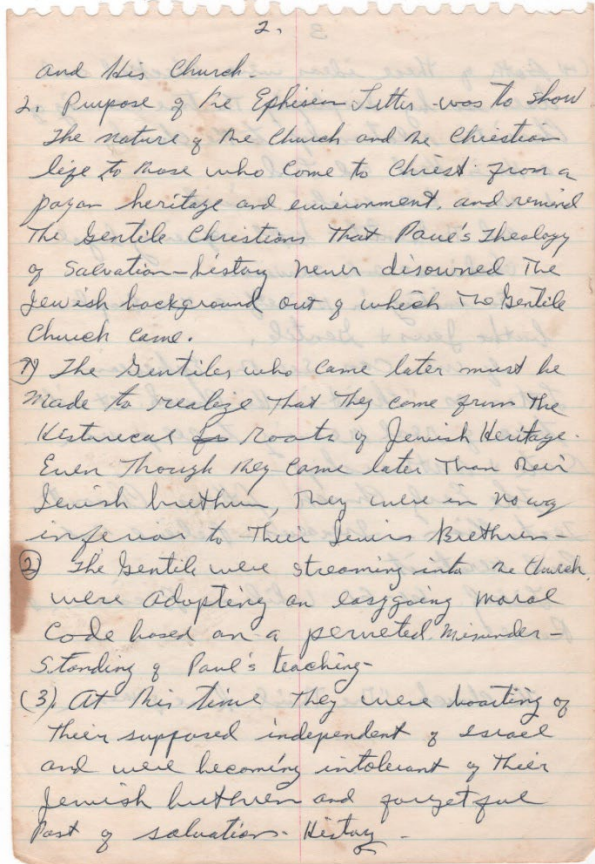 2.
and His Church.
2. Purpose of the Ephesien Letter - was to show
The nature of the Church and the Christian
life to those who come to Christ from a
pagan heritage and environment, and remind
The Gentile Christians That Paul's Theology
of Salvation - history never disowned The
Jewish background out of which The Gentile
Church came.
(1) The Gentiles who came later must be
made to realize That They come from The
Historical Roots of Jewish Heritage.
Even Though they came later Than their
Jewish brethren, They were in no way
inferior to Their Jewis Brethren -
(2) The Gentile were streaming into the Church,
were adopting an easygoing moral
Code based on a perveted misunder-
standing of Paul's teaching -
(3) At this time They were boasting of
Their supposed independent of Israel
and were becoming intolerant of Their
Jewish brethren and forgetful
Past of salvation - History -